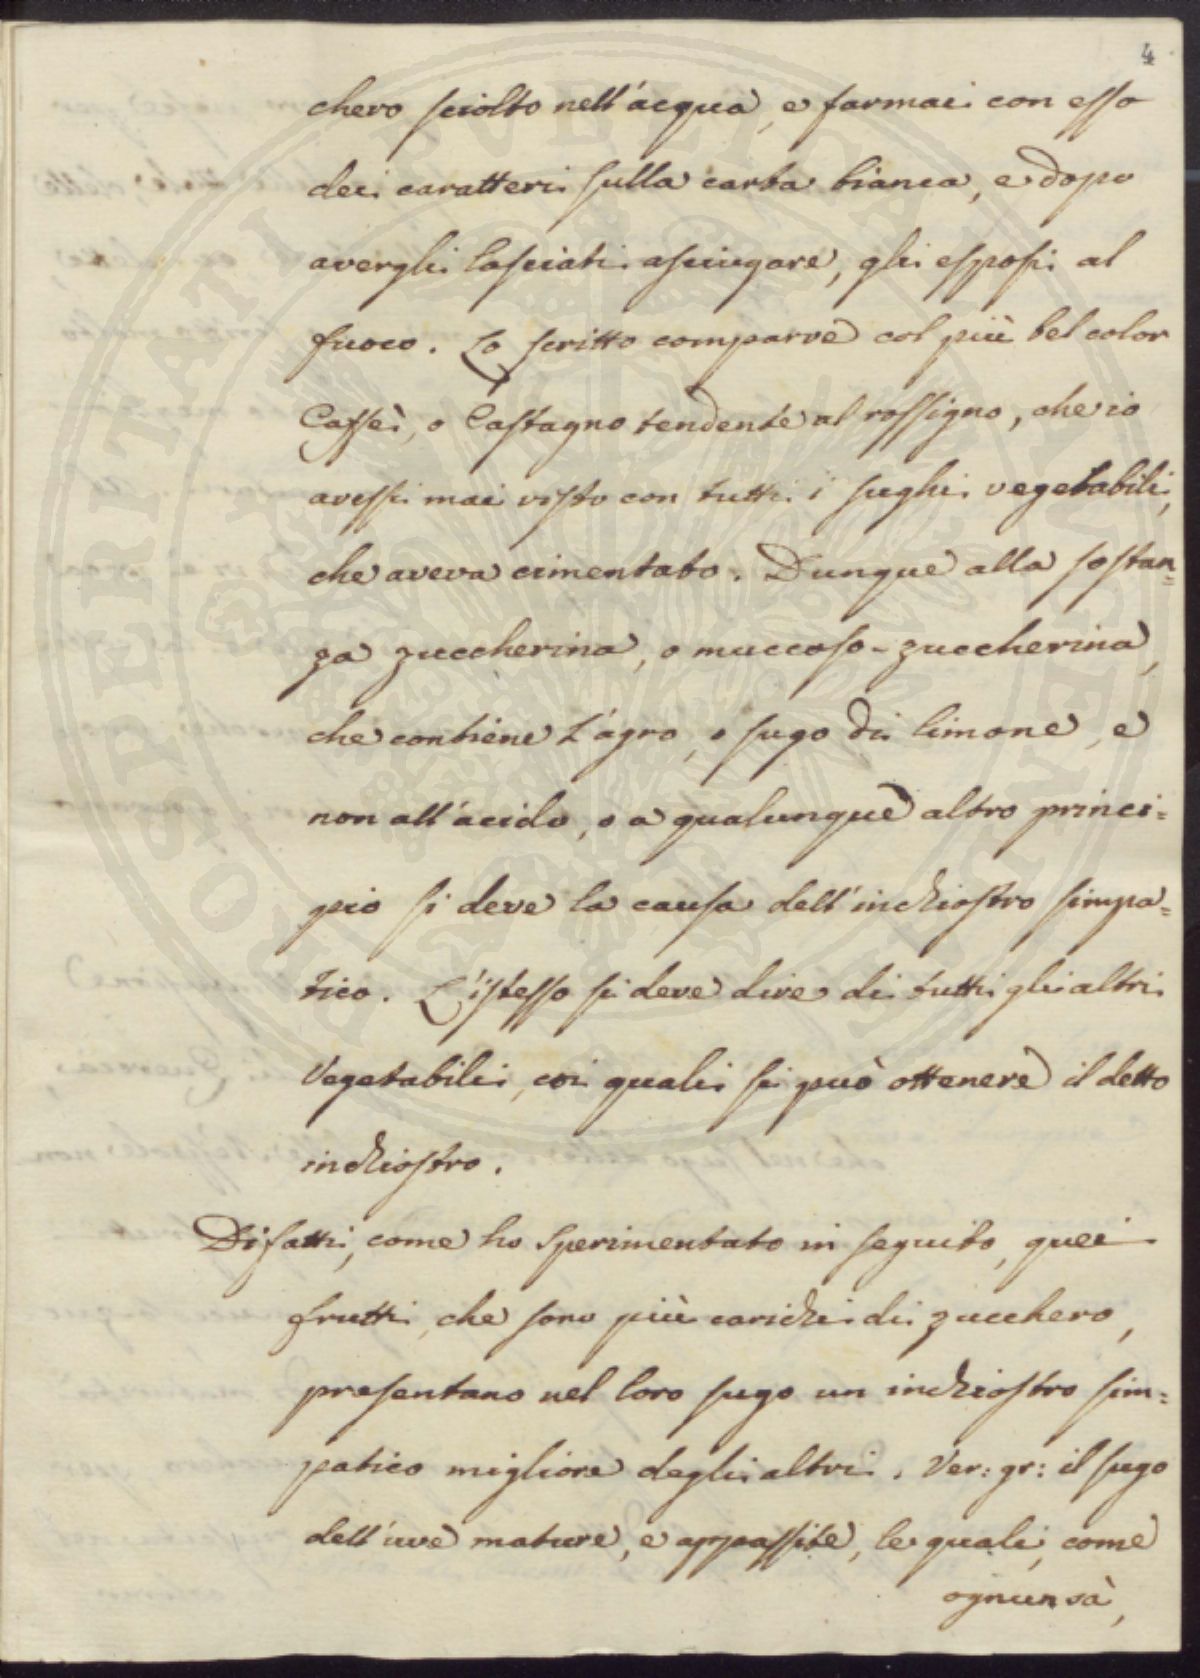 4
chero sciolto nell'acqua, e formai con esso
dei caratteri sulla carta bianca, e dopo
avergli lasciati asciugare, gli esposi al
fuoco. Lo scritto comparve col più bel color
Caffè, o Castagno tendente al rossigno, che io
avessi mai visto con tutti i sughi vegetabili,
che aveva cimentato. Dunque alla sostan=
za zuccherina, o muccoso-zuccherina,
che contiene l'agro, o sugo di limone, e
non all'acido, o a qualunque altro princi=
pio si deve la causa dell'inchiostro simpa=
tico. L'istesso si deve dire di tutti gli altri
Vegetabili, coi quali si può ottenere il detto
inchiostro.
Difatti, come ho sperimentato in seguito, quei
frutti, che sono più carichi di zucchero,
presentano nel loro sugo un inchiostro sim=
patico migliore degli altri. Ver: gr: il sugo
dell'uve mature, e appassite, le quali, come
ognun sà,
PROSPERITATI PUBLICAE AUGENDAE